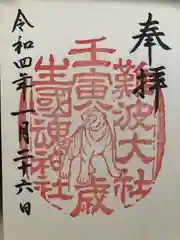 奉拝
難波大社
壬寅
歳
生國魂神社
令和四年一月二十六日